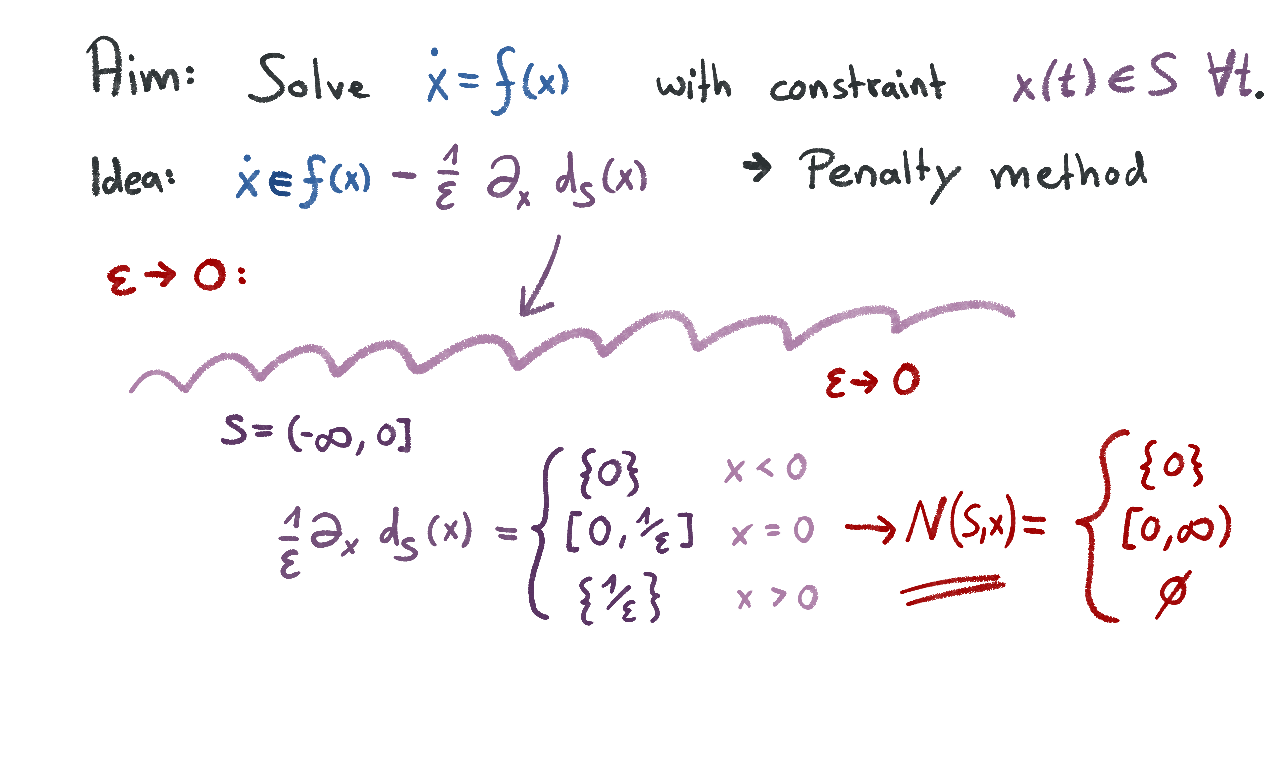 Aim: Solve ẋ = f(x) with constraint x(t) ∈ S ∀t.
Idea: ẋ ∈ f(x) - 1/ε ∂ₓ d_S(x) → Penalty method
ε → 0:
ε → 0
S = (-∞, 0]
{0} x < 0 {0}
1/ε ∂ₓ d_S(x) = { [0, 1/ε] x = 0 → N(S,x) = { [0, ∞)
{1/ε} x > 0 ∅